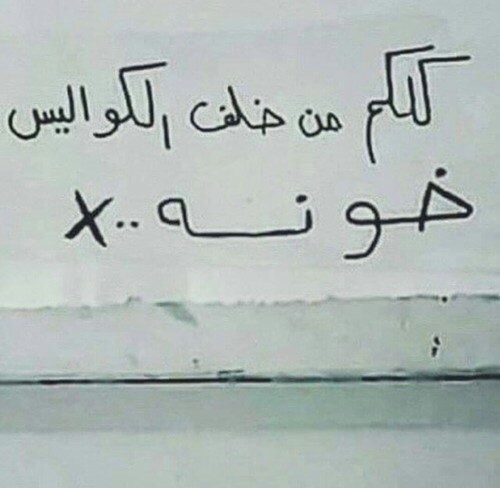 كلكم من خلف الكواليس
خونـــه..X